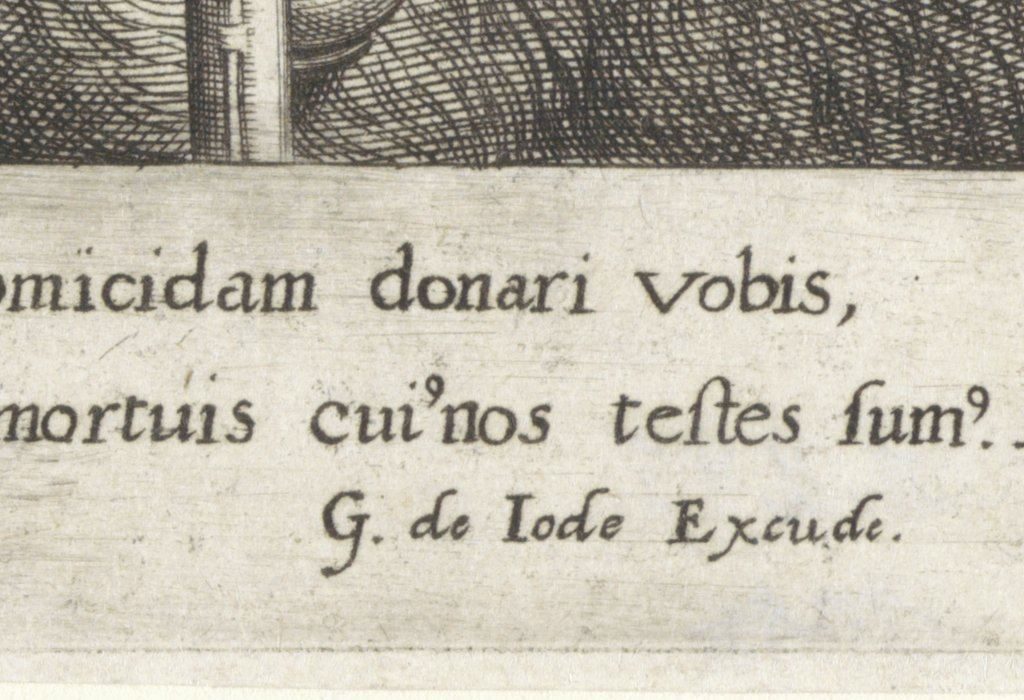 omicidam donari vobis,
mortuis cui⁹ nos teſtes ſum⁹.
G. de Iode Excude.